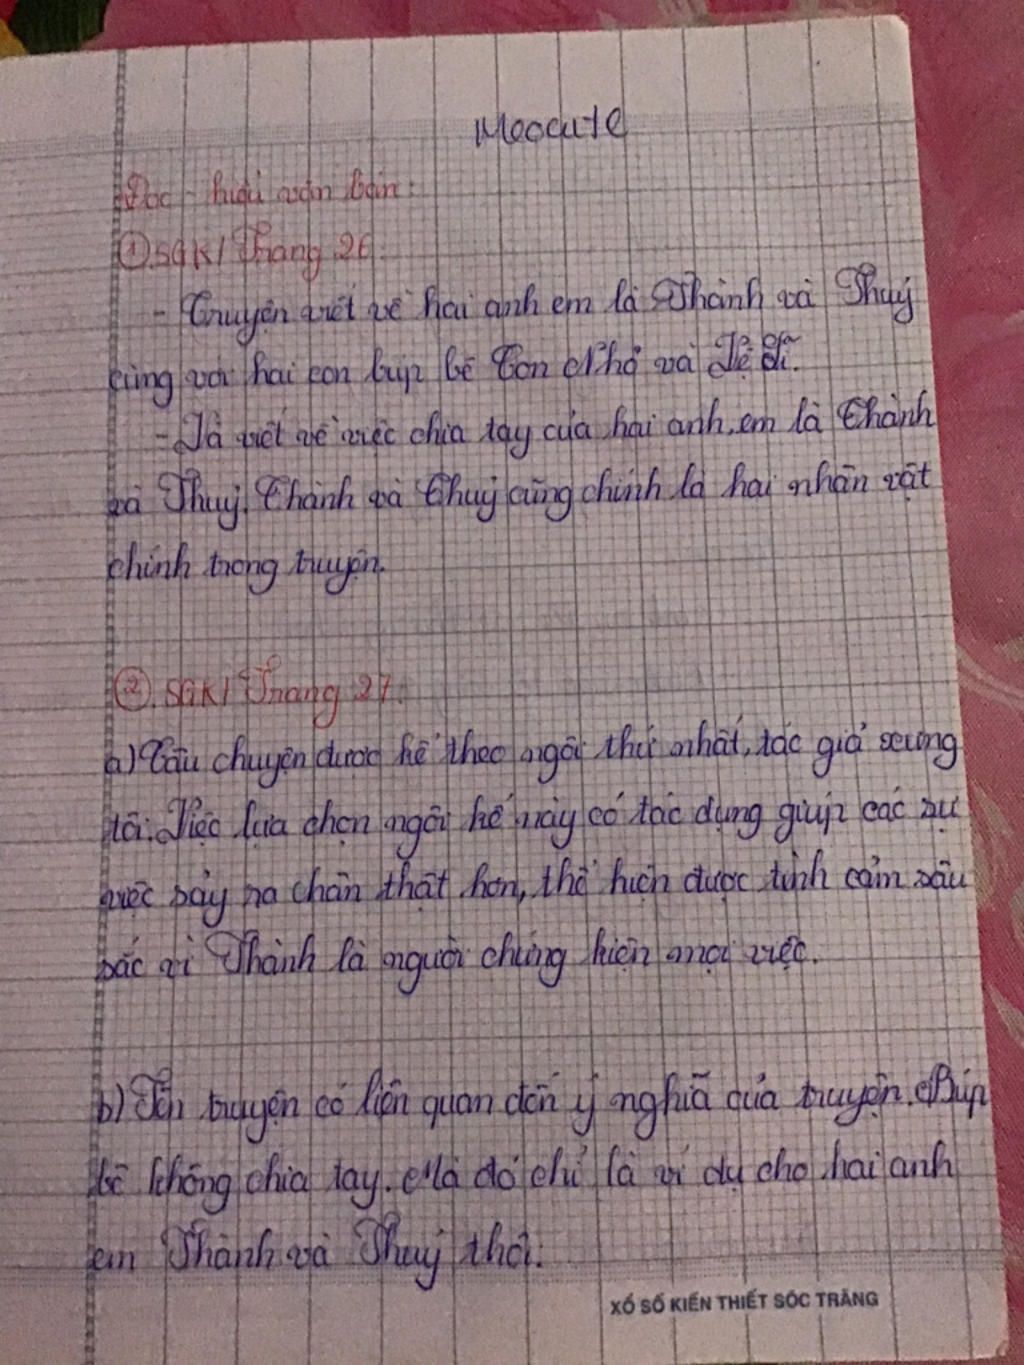 Meocute
Đọc - hiểu văn bản:
①.SGK/Trang 26.
- Truyện viết về hai anh em là Thành và Thuỷ
cùng với hai con búp bê Con Nhỏ và Vệ Sĩ.
- Là viết về việc chia tay của hai anh em là Thành
và Thuỷ. Thành và Thuỷ cũng chính là hai nhân vật
chính trong truyện.
②.SGK/Trang 27.
a) Câu chuyện được kể theo ngôi thứ nhất, tác giả xưng
tôi. Việc lựa chọn ngôi kể này có tác dụng giúp các sự
việc sảy ra chân thật hơn, thể hiện được tình cảm sâu
sắc vì Thành là người chứng kiện mọi việc.
b) Tên truyện có liên quan đến ý nghĩa của truyện. Búp
bê không chia tay. Mà đó chỉ là ví dụ cho hai anh
em Thành và Thuỷ thôi.
XỔ SỐ KIẾN THIẾT SÓC TRĂNG